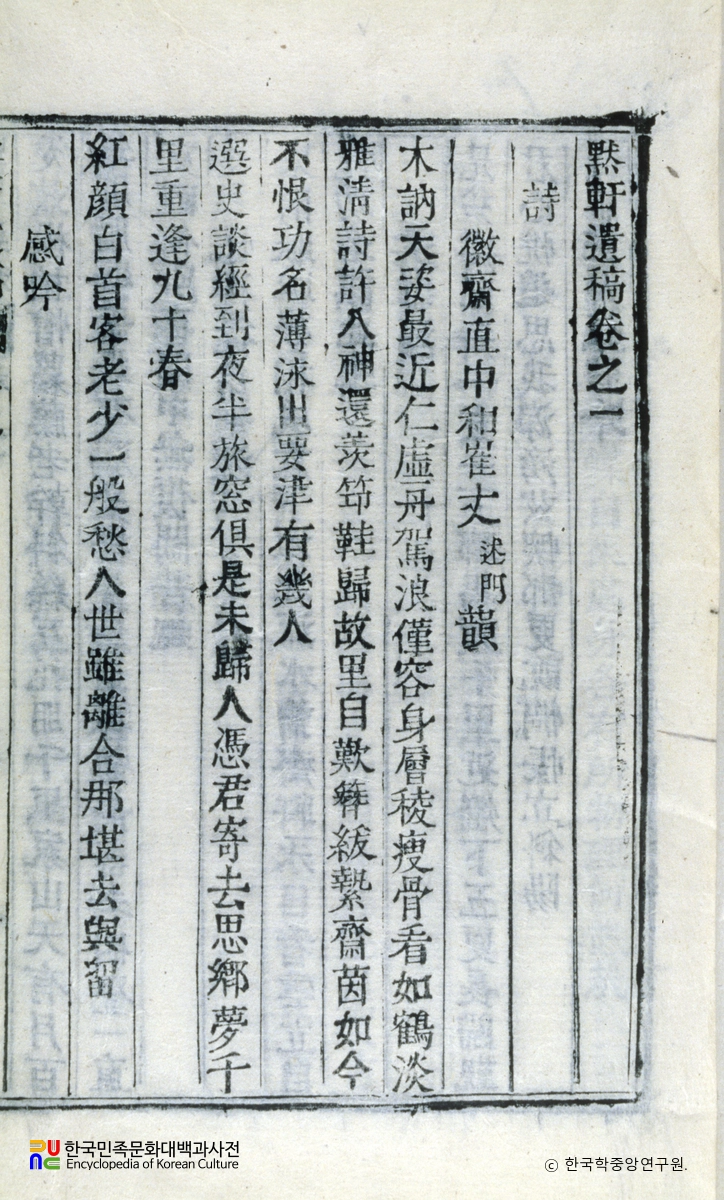 黙軒遺稿卷之一
詩
徽齋直中和崔丈述門韻
木訥天姿最近仁虛舟駕浪僅容身層稜瘦骨看如鶴淡
雅淸詩許入神還羨笻鞋歸故里自歎簪紱縶齋茵如今
不恨功名薄泳出要津有幾人
選史談經到夜半旅窓俱是未歸人憑君寄去思鄉夢千
里重逢九十春
紅顔白首客老少一般愁人世雖離合那堪去與留
感吟
한국민족문화대백과사전
Encyclopedia of Korean Culture
ⓒ 한국학중앙연구원.